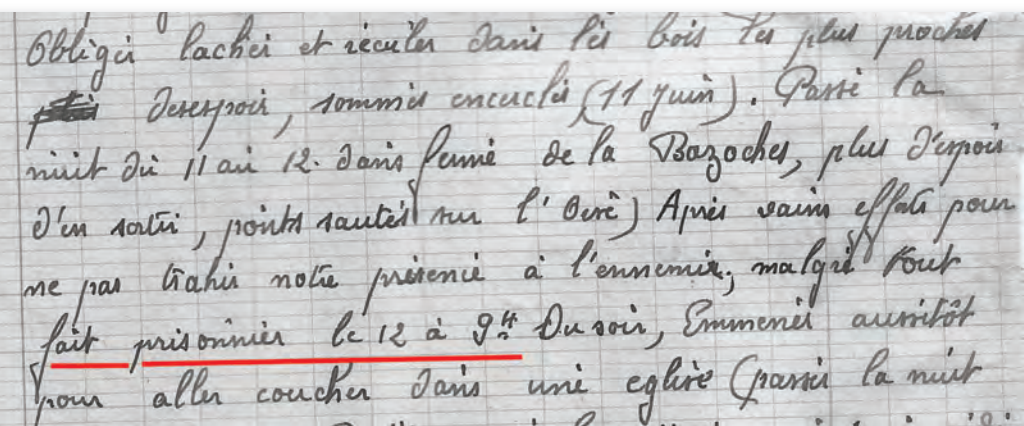 Obligér lacher et réculer dans les bois les plus proches
désespoir, sommes encerclés (11 Juin). Passé la
nuit du 11 au 12. dans ferme de la Bazoches, plus d'espoir
d'en sortir, ponts sautés sur l'Oise) Après vains efforts pour
ne pas trahir notre présence à l'ennemie, malgré tout
fait prisonnier le 12 à 9h Du soir, Emmenés aussitôt
pour aller coucher dans une eglise (passer la nuit